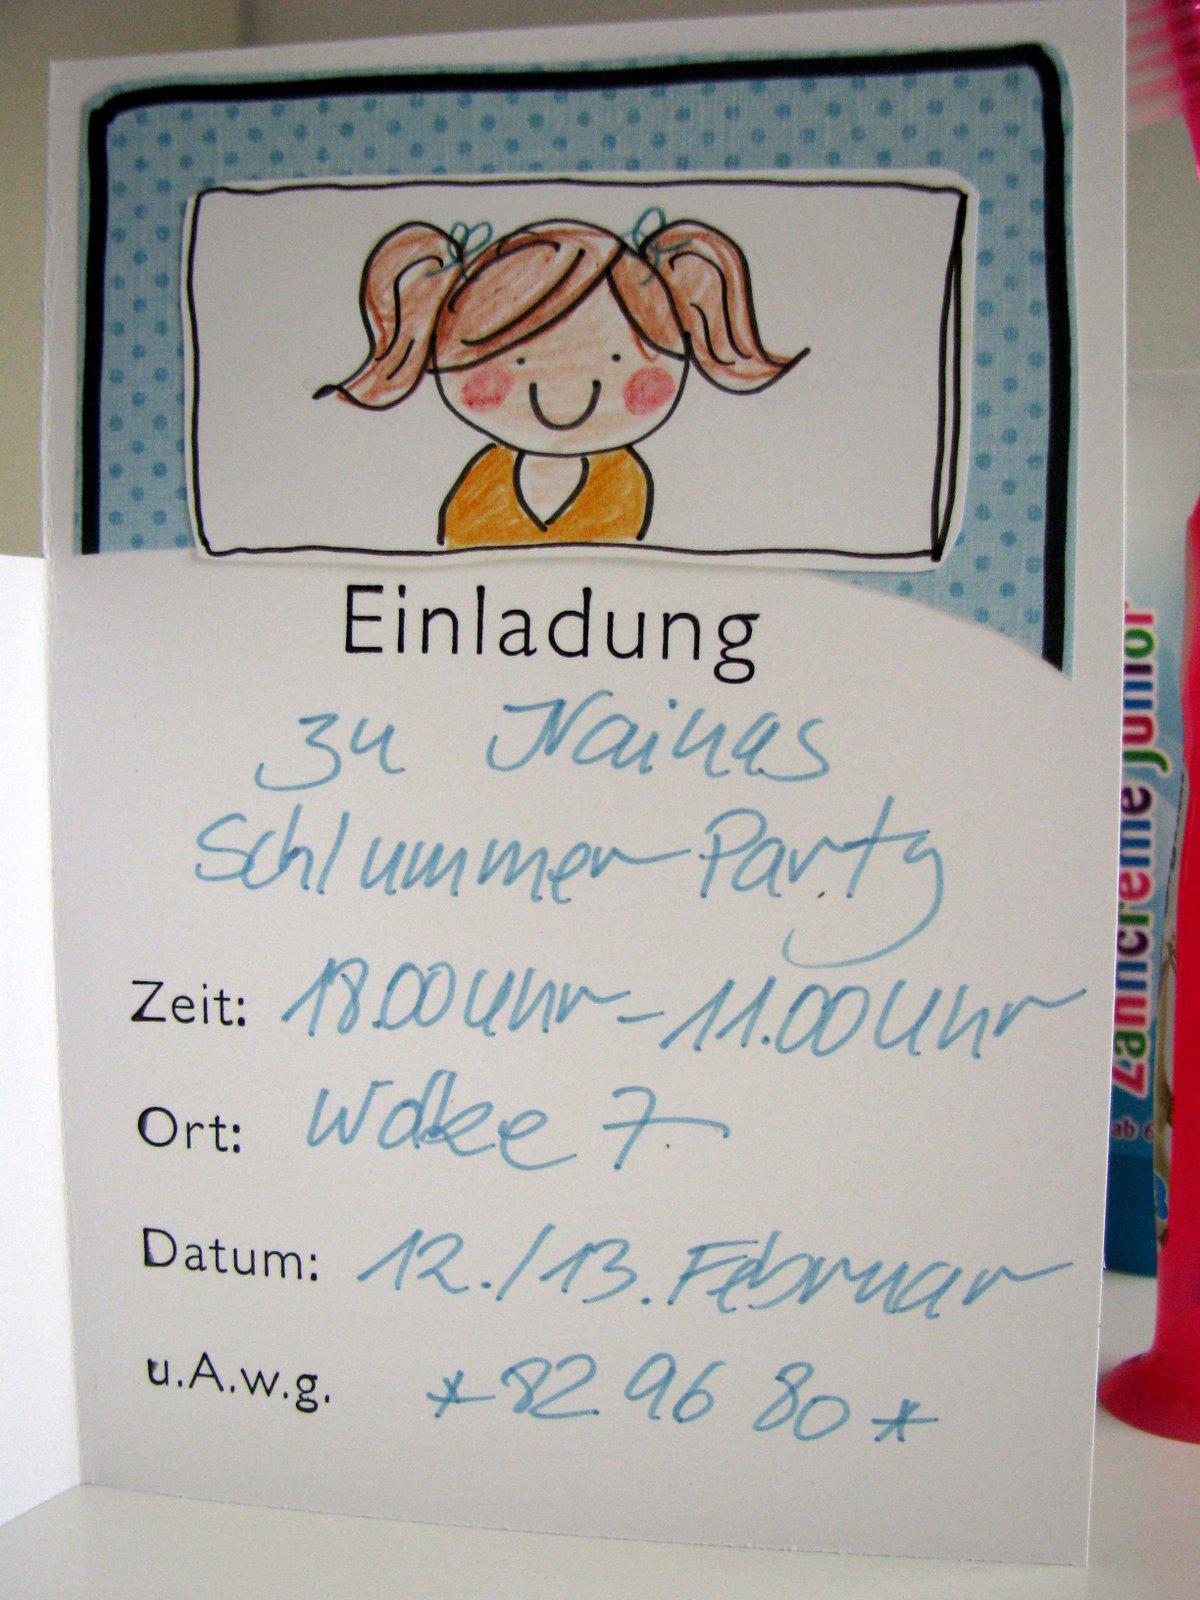 Einladung
zu Nainas
Schlummer Party
Zeit: 18.00 Uhr – 11.00 Uhr
Ort: Wolke 7
Datum: 12./13. Februar
u.A.w.g. *82 96 80*
Zahncreme junior
ab 6